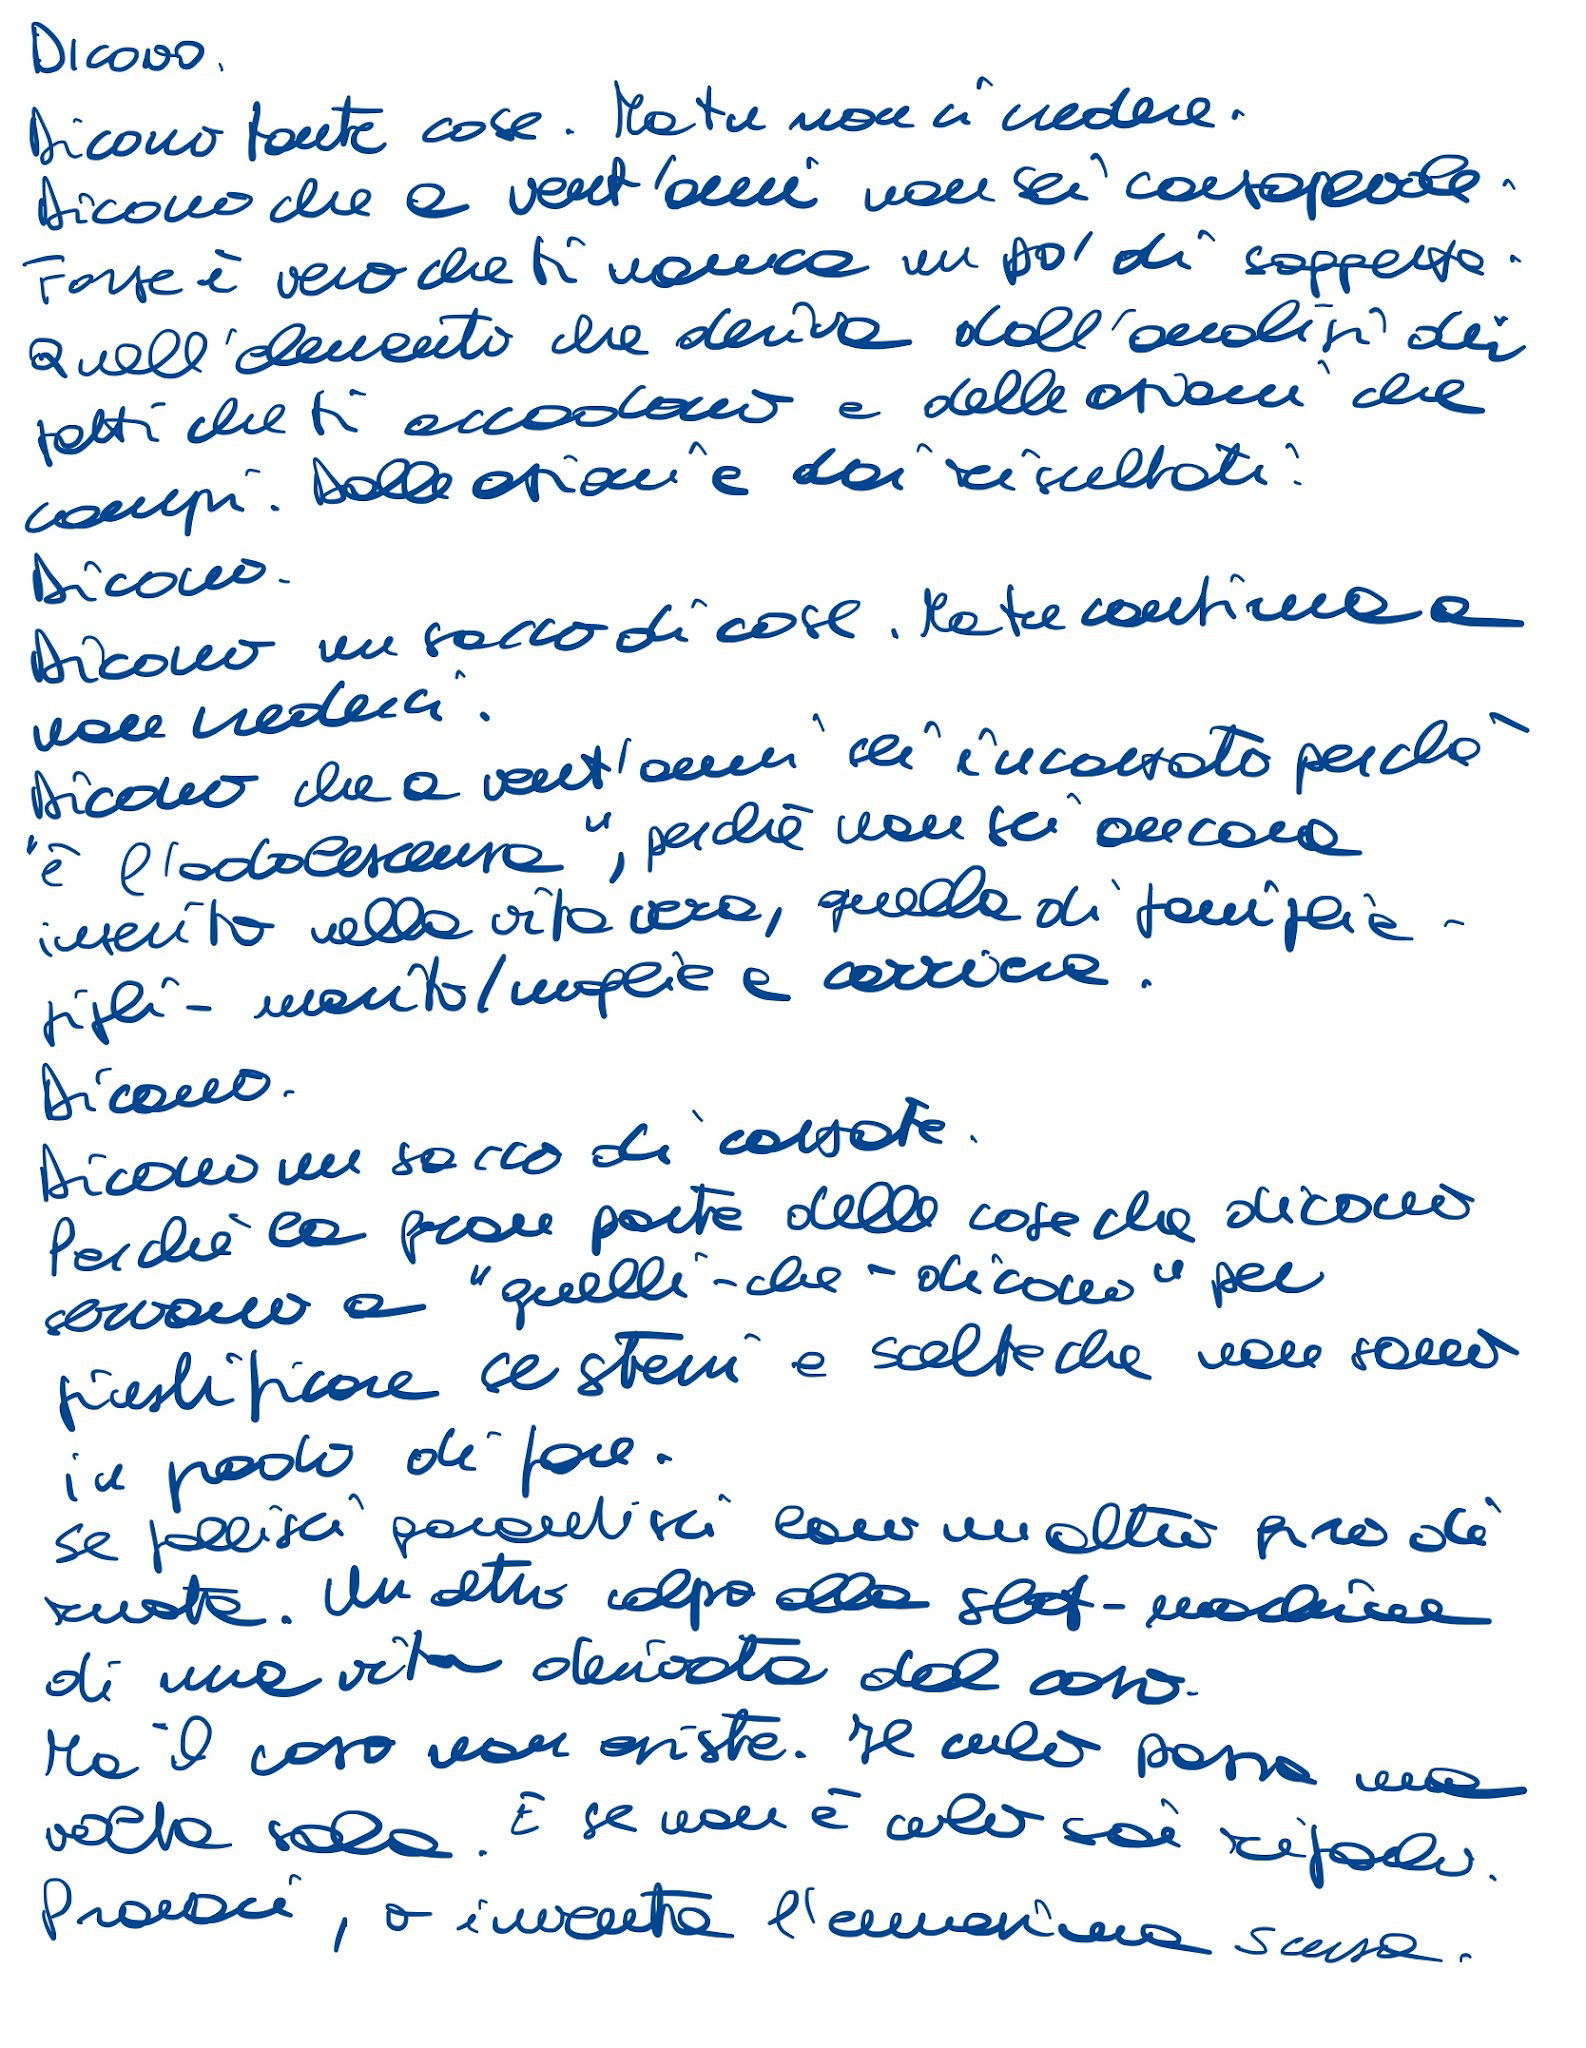 Dicono.
Dicono tante cose. Ma tu non ci credere.
Dicono che a vent'anni non sei consapevole.
Forse è vero che ti manca un po' di saggezza.
Quell'elemento che deriva dall'analisi dei
fatti che ti accadono e delle azioni che
compi. Dalle azioni e dai risultati.
Dicono.
Dicono un sacco di cose. Ma tu continua a
non crederci.
Dicono che a vent'anni sei incazzato perché
"è l'adolescenza", perché non sei ancora
inserito nella vita vera, quella di famiglie -
figli - marito/moglie e carriera.
Dicono.
Dicono un sacco di cazzate.
Perché la gran parte delle cose che dicono
servono a "quelli-che-dicono" per
giustificare se stessi e scelte che non sono
in grado di fare.
Se fallisci garantisci loro un altro giro di
ruota. Un altro colpo alla slot-machine
di una vita derivata dal caso.
Ma il caso non esiste. Il culo passa una
volta sola. E se non è culo sai rifarlo.
Provaci, o inventa l'ennesima scusa.